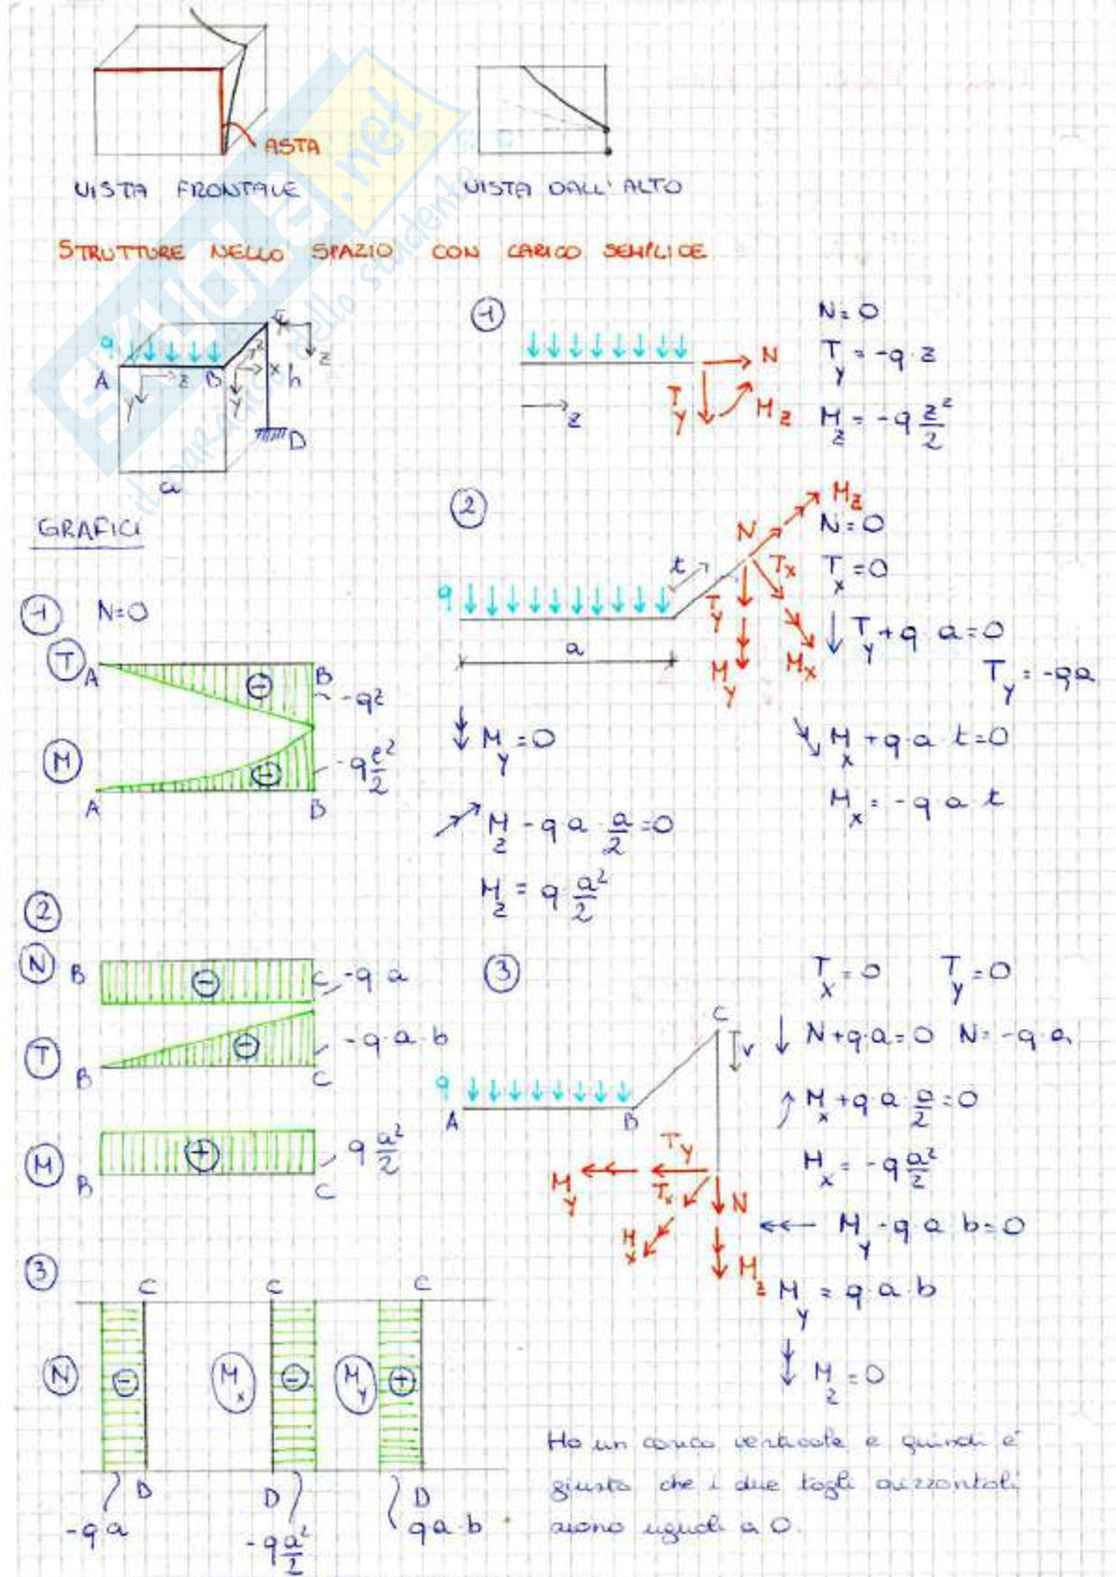 ASTA
VISTA FRONTALE
VISTA DALL'ALTO
STRUTTURE NELLO SPAZIO CON CARICO SEMPLICE
SKUOLA.net
q
A
B
z
y
x
y
z
h
D
a
1
N
T_y
M_z
z
N=0
T_y = -q·z
M_z = -q z²/2
GRAFICI
1 N=0
T
A
B
-qz
M
A
B
-q z²/2
2
q
a
t
N
M_z
T_x
T_y
M_y
M_x
N=0
T_x=0
T_y+q·a=0
T_y=-qa
M_y=0
M_x+q·a·t=0
M_x=-q a t
M_z-q a·a/2=0
M_z=q a²/2
2
N B C -q a
T B C -q·a·b
M B C q a²/2
3
q
A
B
C
v
T_y
M_y
T_x
M_x
N
M_z
T_x=0 T_y=0
N+q·a=0 N=-q·a
M_x+q a a/2=0
M_x=-q a²/2
M_y-q a b=0
M_y=q·a·b
M_z=0
3
C C C
N M_x M_y
D D D
-q a
-q a²/2
q a·b
Ho un carico verticale e quindi è
giusto che i due tagli orizzontali
siano uguali a 0